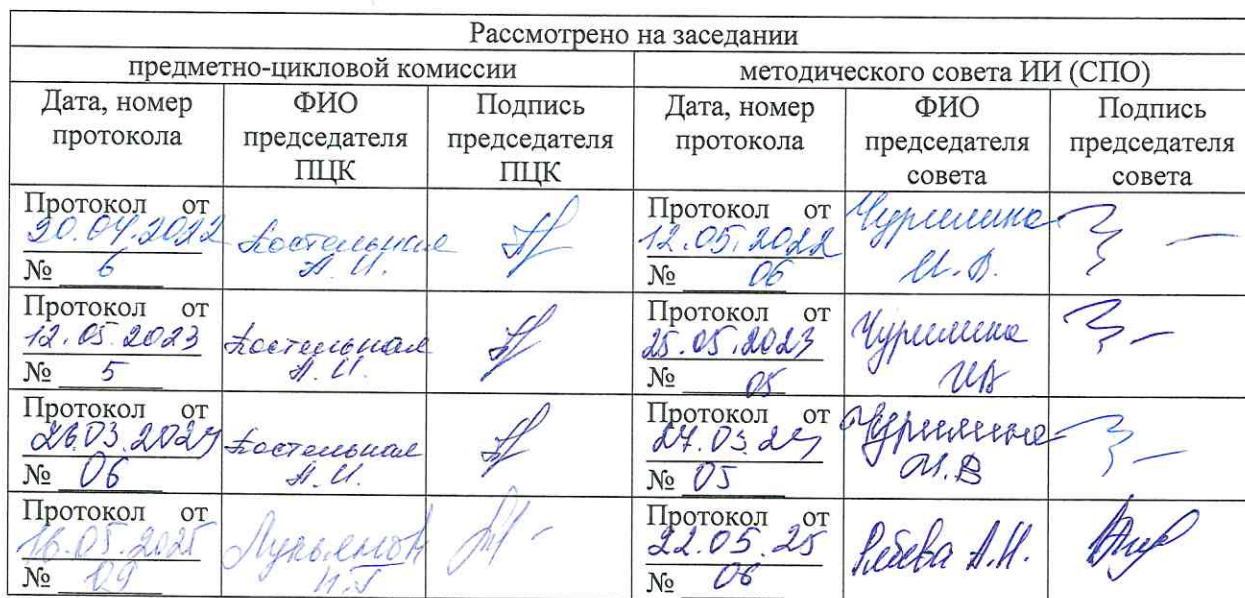 Рассмотрено на заседании
предметно-цикловой комиссии методического совета ИИ (СПО)
Дата, номер протокола ФИО председателя ПЦК Подпись председателя ПЦК Дата, номер протокола ФИО председателя совета Подпись председателя совета
Протокол от
30.04.2022 Костельная А.И.
№ 6
Протокол от
12.05.2022 Чурилина И.В.
№ 06
Протокол от
12.05.2023 Костельная А.И.
№ 5
Протокол от
25.05.2023 Чурилина ИВ
№ 05
Протокол от
26.03.2024 Костельная А.И.
№ 06
Протокол от
27.03.24 Чурилина И.В
№ 05
Протокол от
16.05.2025
№ 09
Протокол от
22.05.25 А.Н.
№ 06